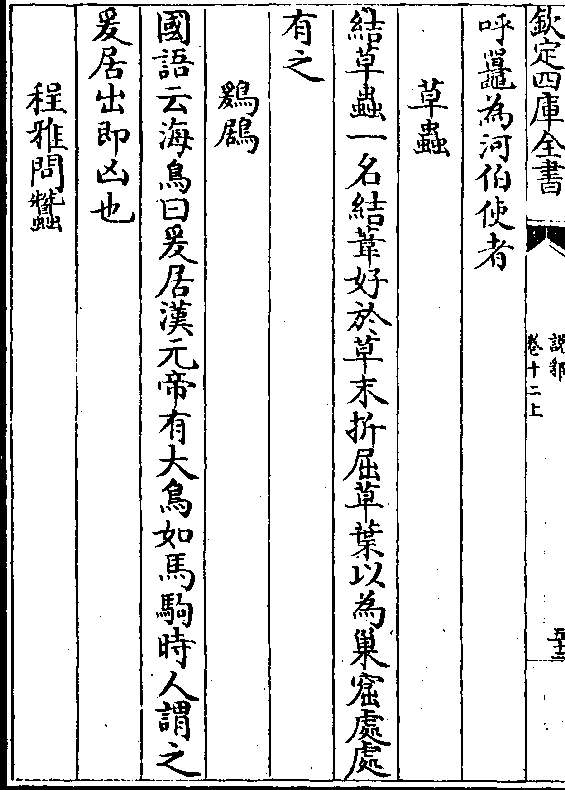 欽定四庫全書
說郛
卷十二上
呼鼉為河伯使者
草蟲
結草蟲一名結葦好於草末折屈草葉以為巢窟處處
有之
鶢鶋
國語云海鳥曰爰居漢元帝有大鳥如馬駒時人謂之
爰居出即凶也
程雅問蠶